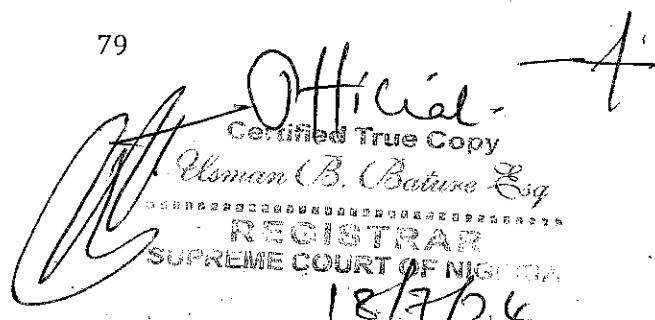 79
Official -
Certified True Copy
Usman B. Bature Esq
REGISTRAR
SUPREME COURT OF NIGERIA
18/7/24